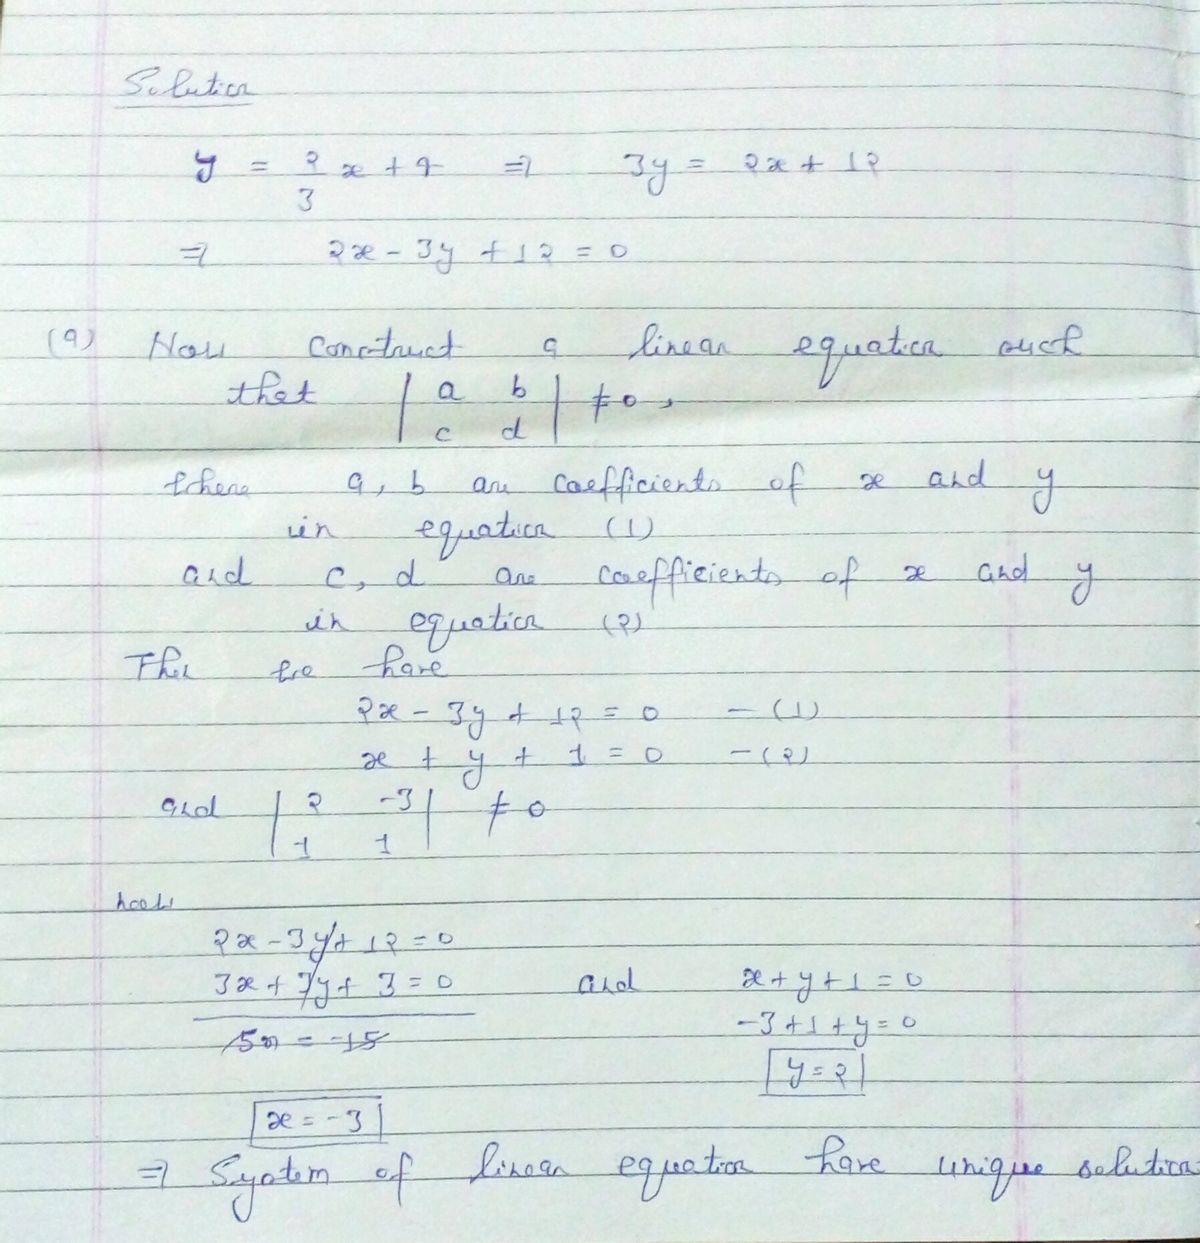 Solution
y = 2/3 x + 4 ⇒ 3y = 2x + 12
⇒ 2x - 3y + 12 = 0
(a) Now construct a linear equation such
that | a b | ≠ 0,
| c d |
where a, b are coefficients of x and y
in equation (1)
and c, d are coefficients of x and y
in equation (2)
The we have
2x - 3y + 12 = 0 - (1)
x + y + 1 = 0 - (2)
and | 2 -3 | ≠ 0
| 1 1 |
now
2x - 3y + 12 = 0
3x + 3y + 3 = 0 and x + y + 1 = 0
5x = -15 -3 + 1 + y = 0
y = 2
x = -3
⇒ System of linear equation have unique solution